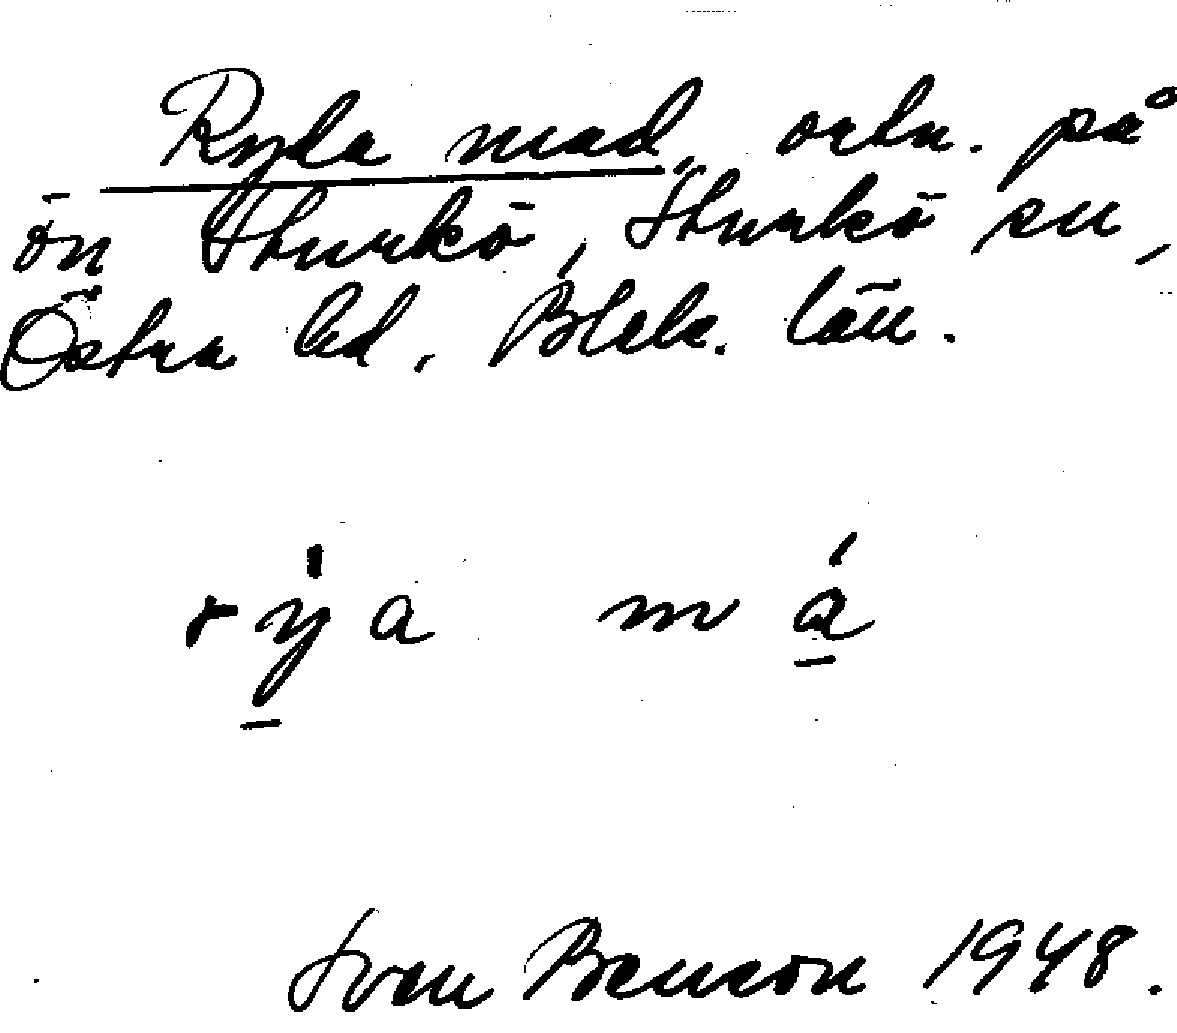 Ryda mad, ortn. på
ön Sturkö, Sturkö sn,
Östra hd, Blek. län.
rýa má
Sven Benson 1948.